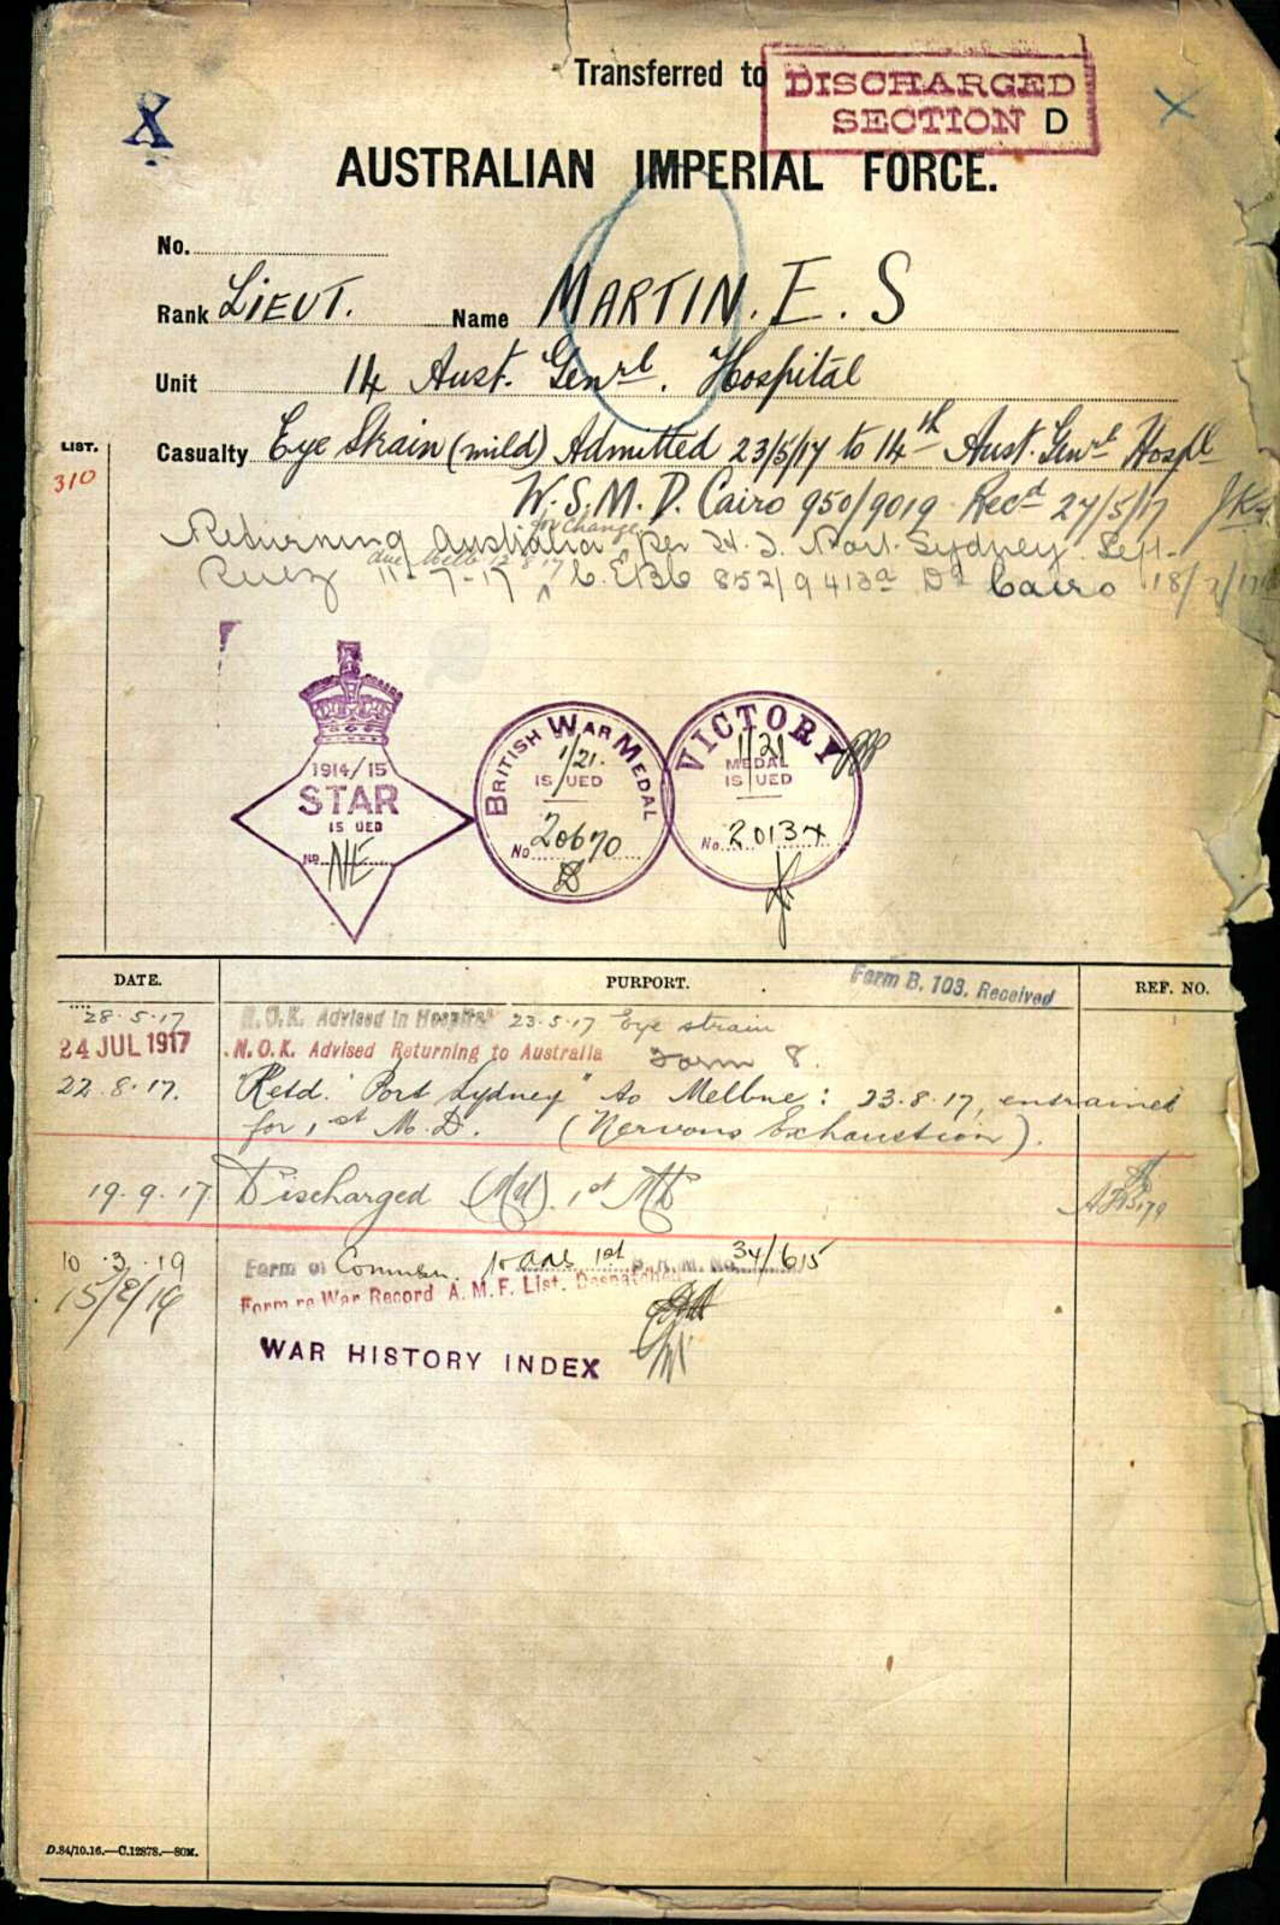 Transferred to
DISCHARGED
SECTION D
X
AUSTRALIAN IMPERIAL FORCE.
No.
Rank LIEUT. Name MARTIN. E. S
Unit 14 Aust. Genrl. Hospital
LIST.
310
Casualty Eye Strain (mild) Admitted 23/5/17 to 14th Aust. Genrl Hospl
W.S.M.D. Cairo 950/9019 Recd 27/5/17
for change
Returning Australia per H.T. Port Sydney Left
due Melb 12 8 17
Suez 11-7-17 852/9413a Cairo 18/7/17
1914/15
STAR
ISSUED
No. NE
BRITISH WAR MEDAL
1/21.
ISSUED
No 20670
VICTORY
1/21
MEDAL
ISSUED
No. 20134
DATE. PURPORT. Form B. 103. Received REF. NO.
28.5.17 N.O.K. Advised in Hospital 23.5.17 Eye strain
24 JUL 1917 N.O.K. Advised Returning to Australia Form 8.
22.8.17. Retd. "Port Sydney" to Melbne: 23.8.17, entrained
for 1st M.D. (Nervous Exhaustion).
19.9.17 Discharged 1st MD
10.3.19 Form of Commsn. 1st No. 34/615
Form re War Record A.M.F. List. Despatched
WAR HISTORY INDEX
D.84/10.16.—C.12878.—80M.